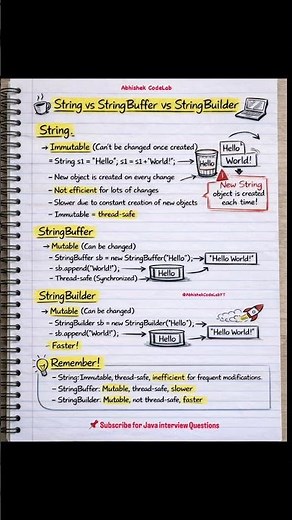 Abhishek CodeLab
String vs StringBuffer vs StringBuilder
String
→ Immutable (Can't be changed once created)
= String s1 = "Hello", s1 = s1+'World!";
Hello
Hello"
World!
- New object is created on every change
- Not efficient for lots of changes
- Slower due to constant creation of new objects
- Immutable = thread-safe
New String
object is created
each time!
StringBuffer
→ Mutable (Can be changed)
- StringBuffer sb = new StringBuffer("Hello");
"Hello World!"
- sb.append("World!");
Hello
- Thread-safe (Synchronized)
StringBuilder
@AbhishekCodeLabYT
→ Mutable (Can be changed)
- StringBuilder sb = new StringBuilder("Hello");
- sb.append("World!");
Hello
"Hello World!"
- Faster!
Remember!
- String: Immutable, thread-safe, inefficient for frequent modifications.
- StringBuffer: Mutable, thread-safe, slower
- StringBuilder: Mutable, not thread-safe, faster
Subscribe for Java interview Questions